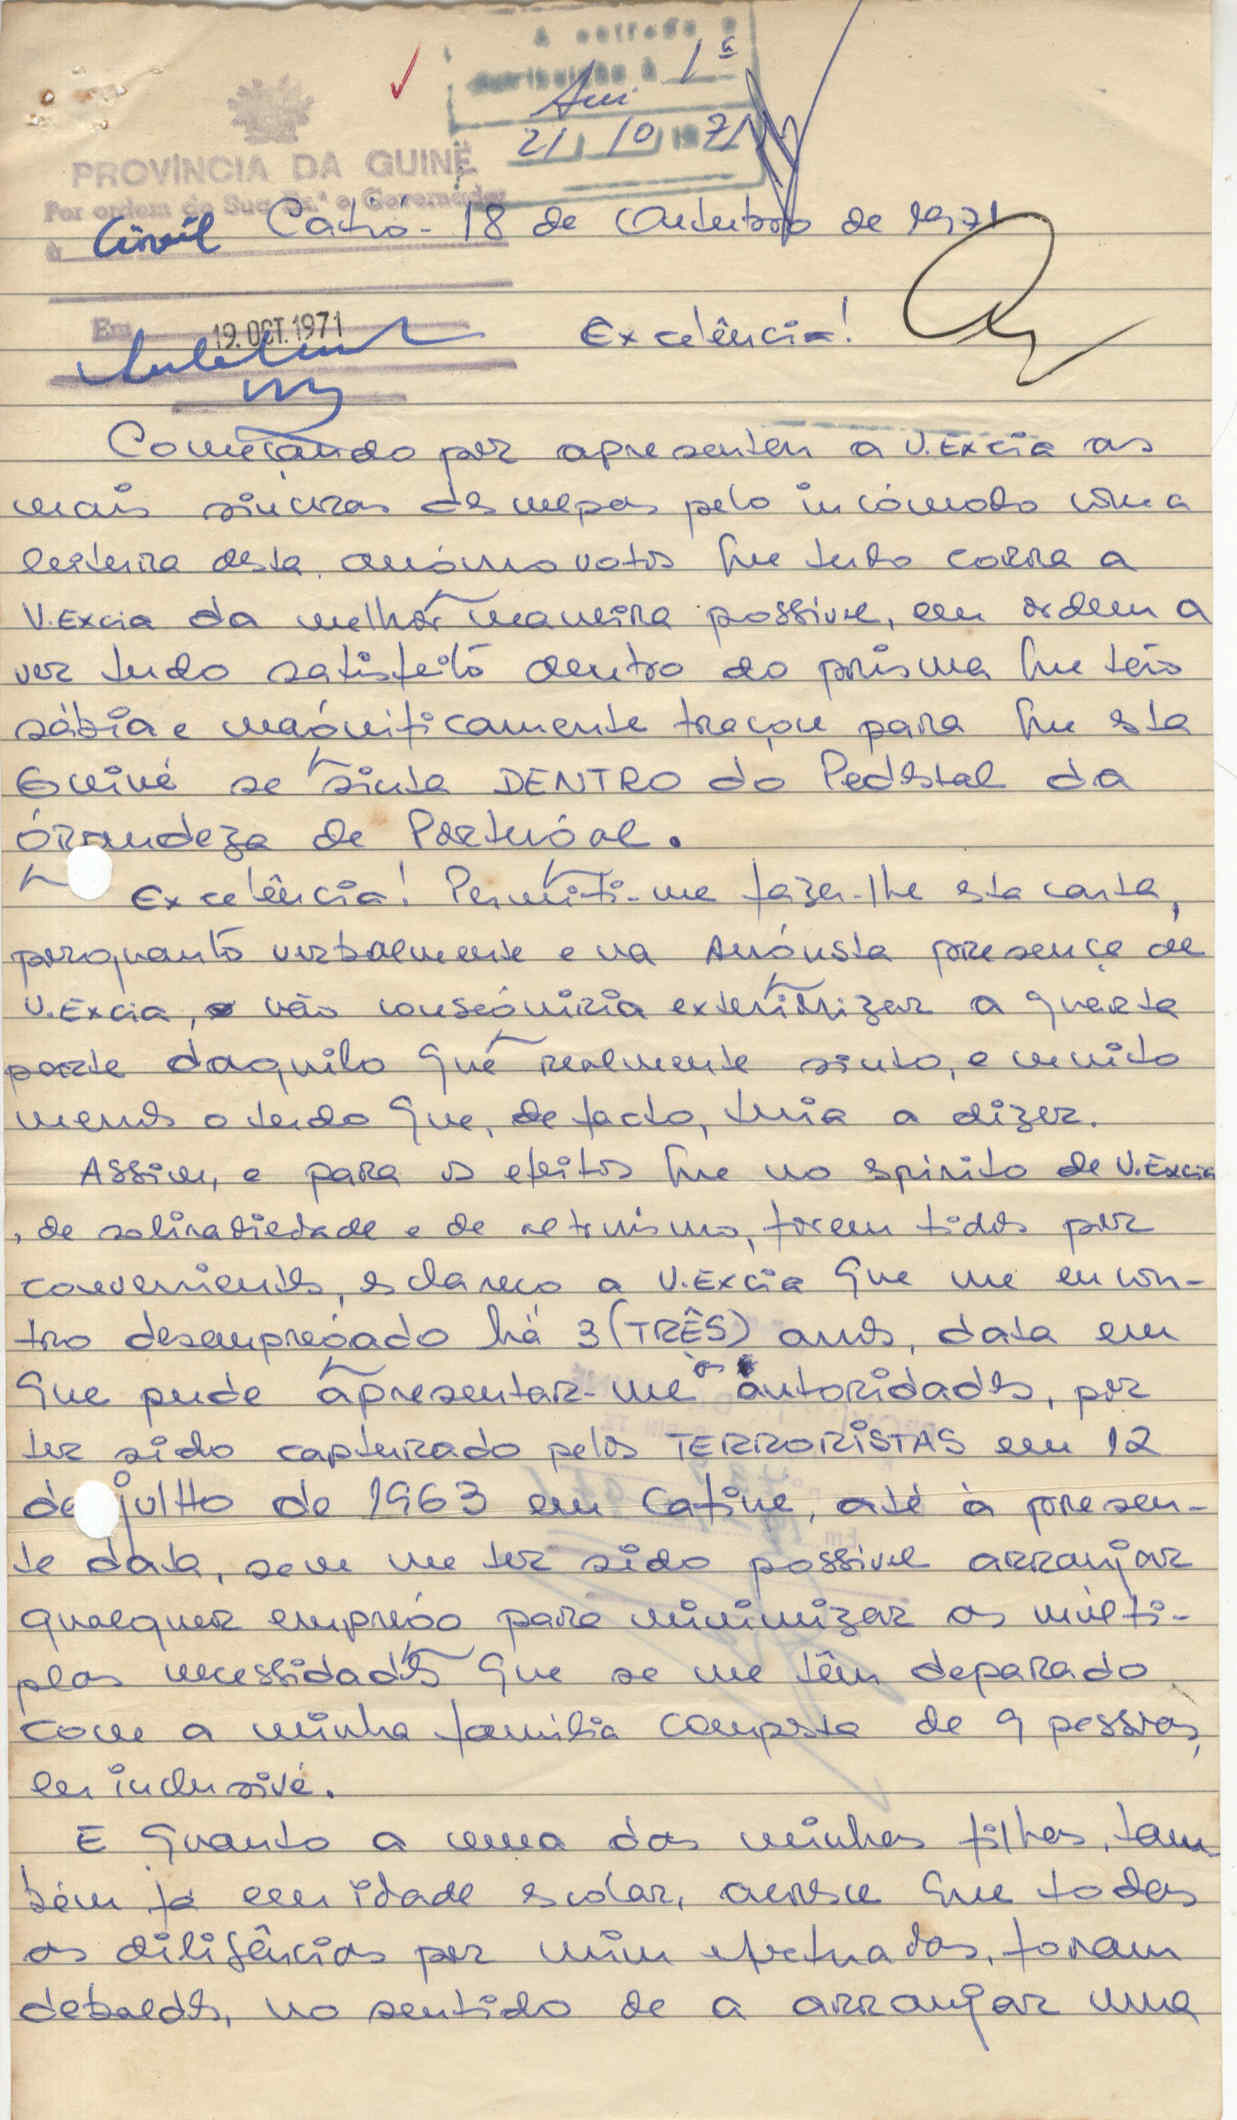 A entrada e
distribuição à 1ª
21/10/1971
PROVÍNCIA DA GUINÉ
Por ordem de Sua Ex.ª o Governador
à Civil
Catió - 18 de Outubro de 1971
Em 19.OCT.1971
Excelência!
Começando por apresentar a V.Excia as
mais sinceras desculpas pelo incómodo com a
leitura desta, auguro votos que tudo corra a
V.Excia da melhor maneira possivel, em ordem a
ver tudo satisfeito dentro do prisma que tão
sábia e magnificamente traçou para que esta
Guiné se sinta DENTRO do Pedestal da
Grandeza de Portugal.
Excelência! Permiti-me fazer-lhe esta carta,
porquanto verbalmente e na Augusta presença de
V.Excia, não conseguiria exteriorizar a quarta
parte daquilo que realmente sinto, e muito
menos o tudo que, de facto, teria a dizer.
Assim, e para os efeitos que no espirito de V.Excia
, de solirariedade e de altruismo, forem tidos por
convenientes, esclareço a V.Excia que me encon-
tro desempregado há 3 (TRÊS) anos, data em
que pude apresentar-me às autoridades, por
ter sido capturado pelos TERRORISTAS em 12
de julho de 1963 em Cafine, até à presen-
te data, sem me ter sido possivel arranjar
qualquer emprego para minimizar as múlti-
plas necessidades que se me têm deparado
com a minha familia composta de 9 pessoas,
eu inclusivé.
E quanto a uma das minhas filhas, tam-
bém já em idade escolar, acresce que todas
as diligências por mim efectuadas, foram
debaldes, no sentido de a arranjar uma